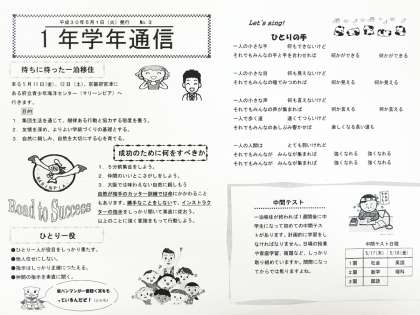 平成30年5月1日(火) 発行 No.3
1年学年通信
待ちに待った一泊移住
来る5月11日(金)、12日(土)、京都府宮津に
ある府立青少年海洋センター(マリーンピア)へ
行きます。
目的
1. 集団生活を通じて、規律ある行動と協力する態度を養う。
2. 友情を深め、よりよい学級づくりの基礎とする。
3. 自然に親しみ、自然を大切にする心を育てる。
MARINPIA
Road to Success
成功のために何をすべきか
1. 5分前集合をしよう。
2. 仲間のいいとこさがしをしよう。
3. 大阪では味わえない自然に親しもう
自然が相手のカッター訓練では命にかかわること
もあります。勝手なことをしないで、インストラク
ターの指示をしっかり聞いて実直に従おう。
以上のことに強く意識をもって行動しよう。
ひとり一役
●ひとり一人が役目をしっかり果たす。
●他人任せにしない。
●後半はしっかり正確につたえる。
●仲間の後半を素直に聞く。
Let's sing!
ひとりの手
一人の小さな手 何もできないけど
それでもみんなの手と手を合わせれば 何かができる 何かができる
一人の小さな目 何も見えないけど
それでもみんなの瞳でみつめれば 何か見える 何か見える
一人の小さな声 何も言えないけど
それでもみんなの声が集まれば 何か言える 何か言える
一人で歩く道 遠くてつらいけど
それでもみんなのあしぶみ響かせば 楽しくなる長い道も
一人の人間は とても弱いけれど
それでもみんなが みんなが集まれば 強くなれる 強くなれる
それでもみんなが みんなが集まれば 強くなれる 強くなれる
中間テスト
一泊移住が終われば1週間後に中
学生になって初めての中間テス
トがあります。計画的に学習をし
なければなりません。日頃の授業
や家庭学習、宿題など、しっかり
取り組めていますか。間際になっ
てからでは焦りますよね。
中間テスト日程
5/17(木) 5/18(金)
1限 社会 英語
2限 数学 理科
3限 国語